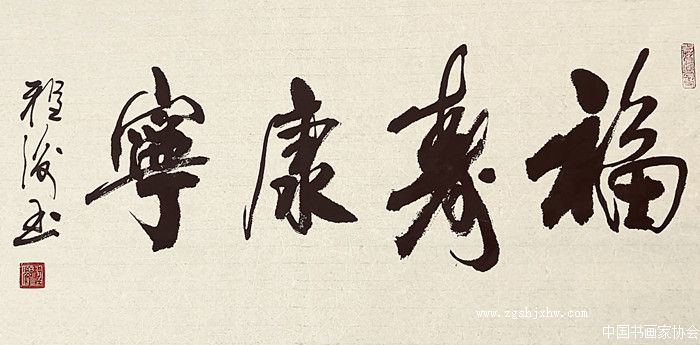 福壽康寧
www.zgshjxhw.com
中国书画家协会